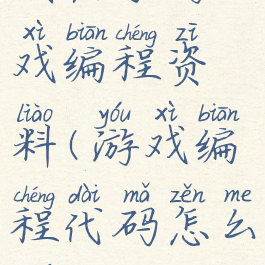 xì biān chéng zī
戏编程资
liào yóu xì biān
料(游戏编
chéng dài mǎ zěn me
程代码怎么